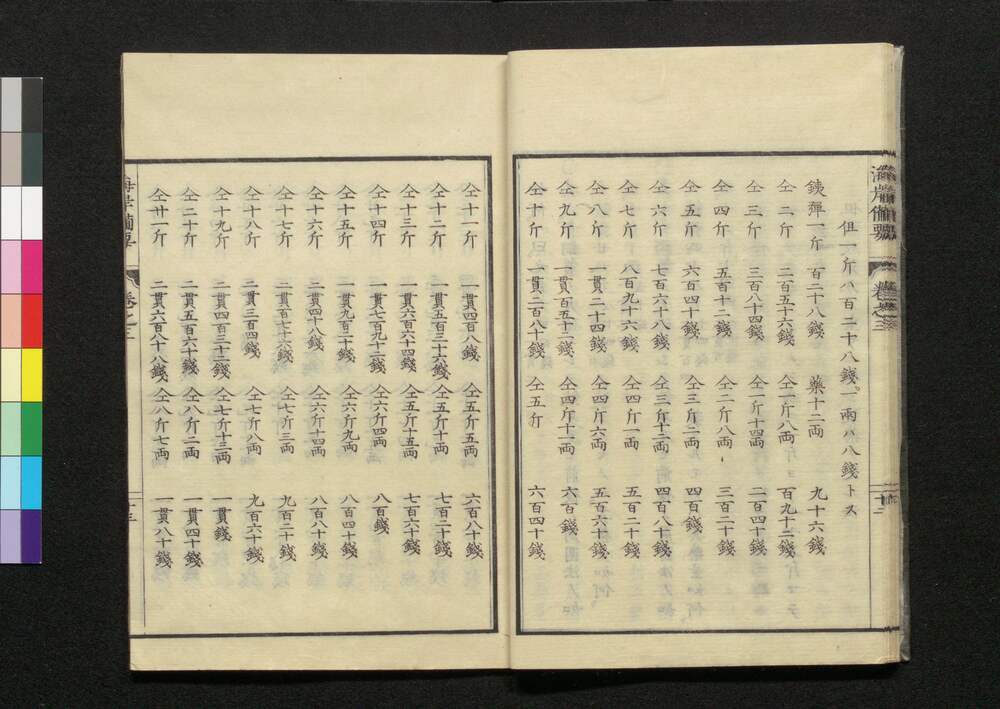 海岸備要　卷之三　十二
但一斤ハ百二十八錢。一兩ハ八錢トス
鉄彈一斤　百二十八錢　藥十二両　九十六錢
仝二斤　二百五十六錢　仝一斤八両　百九十二錢
仝三斤　三百八十四錢　仝一斤十四両　二百四十錢
仝四斤　五百十二錢　仝二斤八両　三百二十錢
仝五斤　六百四十錢　仝三斤二両　四百錢
仝六斤　七百六十八錢　仝三斤十二両　四百八十錢
仝七斤　八百九十六錢　仝四斤一両　五百二十錢
仝八斤　一貫二十四錢　仝四斤六両　五百六十錢
仝九斤　一貫百五十二錢　仝四斤十一両　六百錢
仝十斤　一貫二百八十錢　仝五斤　六百四十錢
仝十一斤　一貫四百八錢　仝五斤五両　六百八十錢
仝十二斤　一貫五百三十六錢　仝五斤十両　七百二十錢
仝十三斤　一貫六百六十四錢　仝五斤十五両　七百六十錢
仝十四斤　一貫七百九十二錢　仝六斤四両　八百錢
仝十五斤　一貫九百二十錢　仝六斤九両　八百四十錢
仝十六斤　二貫四十八錢　仝六斤十四両　八百八十錢
仝十七斤　二貫百七十六錢　仝七斤三両　九百二十錢
仝十八斤　二貫三百四錢　仝七斤八両　九百六十錢
仝十九斤　二貫四百三十二錢　仝七斤十三両　一貫錢
仝二十斤　二貫五百六十錢　仝八斤二両　一貫四十錢
仝廿一斤　二貫六百八十八錢　仝八斤七両　一貫八十錢
海岸備要　卷之三　十三